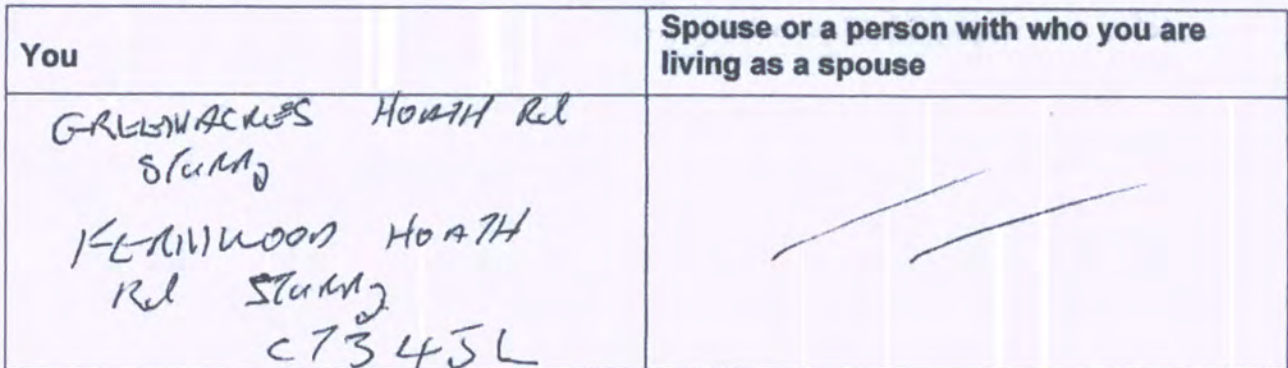 You
Spouse or a person with who you are
living as a spouse
GREENACRES HOATH Rd
Sturry
HOATH
Rd Sturry
CT3 4JL